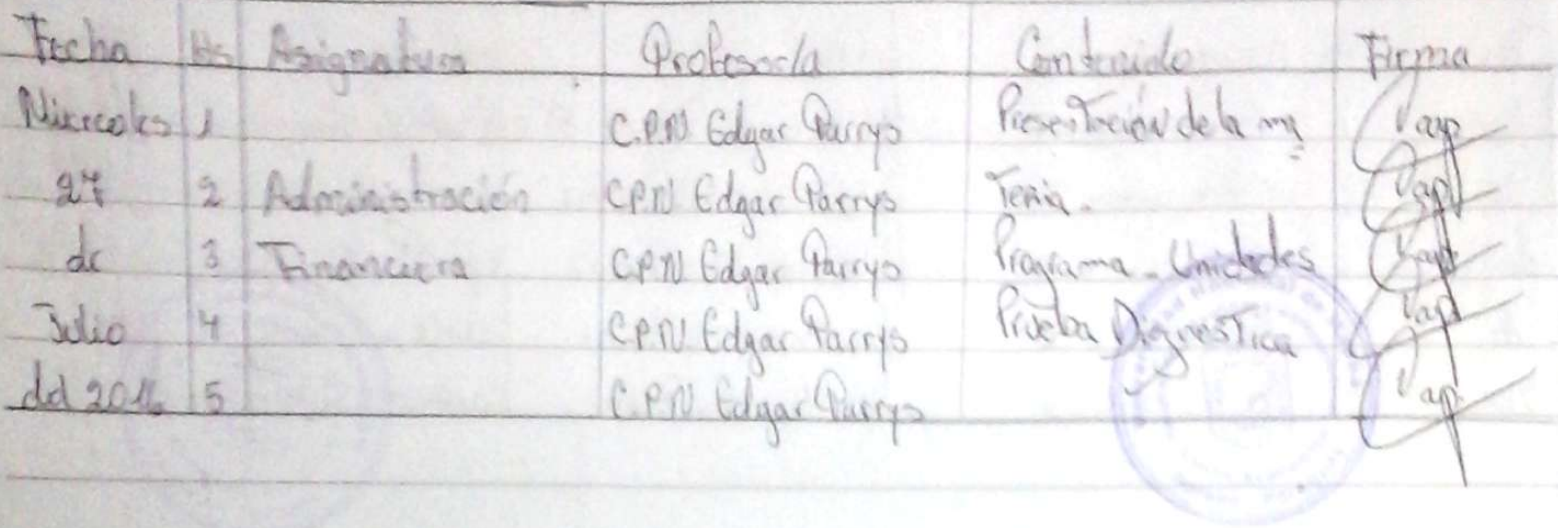 Fecha Hs Asignatura Profesor/a Contenido Firma
Miercoles 1 C.P.N Edgar Parrys Presentación de la ma
27 2 Administración C.P.N Edgar Parrys Teria.
de 3 Financiera C.P.N Edgar Parrys Programa - Unidades
Julio 4 C.P.N Edgar Parrys Prueba Diagnostica
del 2016 5 C.P.N Edgar Parrys